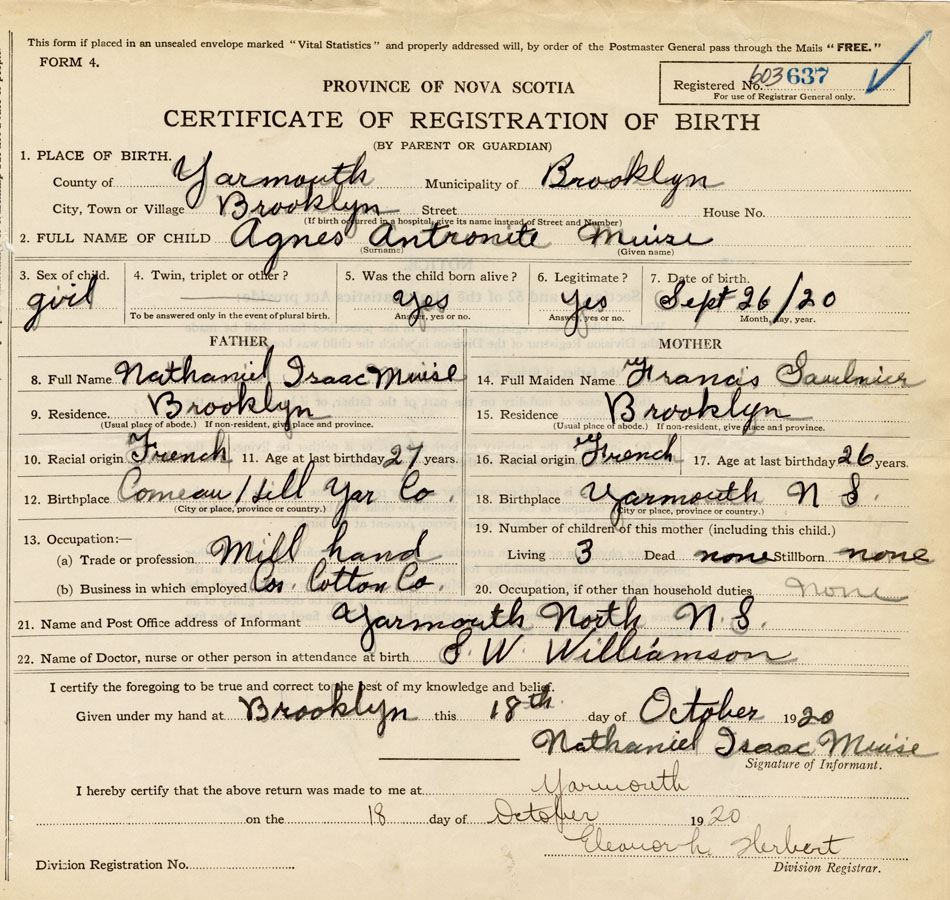 This form if placed in an unsealed envelope marked "Vital Statistics" and properly addressed will, by order of the Postmaster General pass through the Mails "FREE."
FORM 4.
Registered No. 603 637
For use of Registrar General only.
PROVINCE OF NOVA SCOTIA
CERTIFICATE OF REGISTRATION OF BIRTH
(BY PARENT OR GUARDIAN)
1. PLACE OF BIRTH.
County of Yarmouth Municipality of Brooklyn
City, Town or Village Brooklyn Street House No.
(If birth occurred in a hospital, give its name instead of Street and Number)
2. FULL NAME OF CHILD Agnes Antronite Muise
(Surname) (Given name)
3. Sex of child. 4. Twin, triplet or other? 5. Was the child born alive? 6. Legitimate? 7. Date of birth.
girl Yes Yes Sept 26/20
To be answered only in the event of plural birth. Answer, yes or no. Answer, yes or no. Month, day, year.
FATHER MOTHER
8. Full Name Nathaniel Isaac Muise 14. Full Maiden Name Francis Saulnier
9. Residence. Brooklyn 15. Residence Brooklyn
(Usual place of abode.) If non-resident, give place and province. (Usual place of abode.) If non-resident, give place and province.
10. Racial origin French 11. Age at last birthday 27 years. 16. Racial origin French 17. Age at last birthday 26 years.
12. Birthplace Comeau Hill Yar Co. 18. Birthplace Yarmouth N S.
(City or place, province or country.) (City or place, province or country.)
13. Occupation:— 19. Number of children of this mother (including this child.)
(a) Trade or profession Mill hand Living 3 Dead none Stillborn none
(b) Business in which employed Cos. Cotton Co. 20. Occupation, if other than household duties None
21. Name and Post Office address of Informant Yarmouth North N.S.
22. Name of Doctor, nurse or other person in attendance at birth S. W. Williamson
I certify the foregoing to be true and correct to the best of my knowledge and belief.
Given under my hand at Brooklyn this 18th day of October 1920
Nathaniel Isaac Muise
Signature of Informant.
I hereby certify that the above return was made to me at Yarmouth
on the 18 day of October 1920
Eleanor h. Herbert
Division Registration No. Division Registrar.